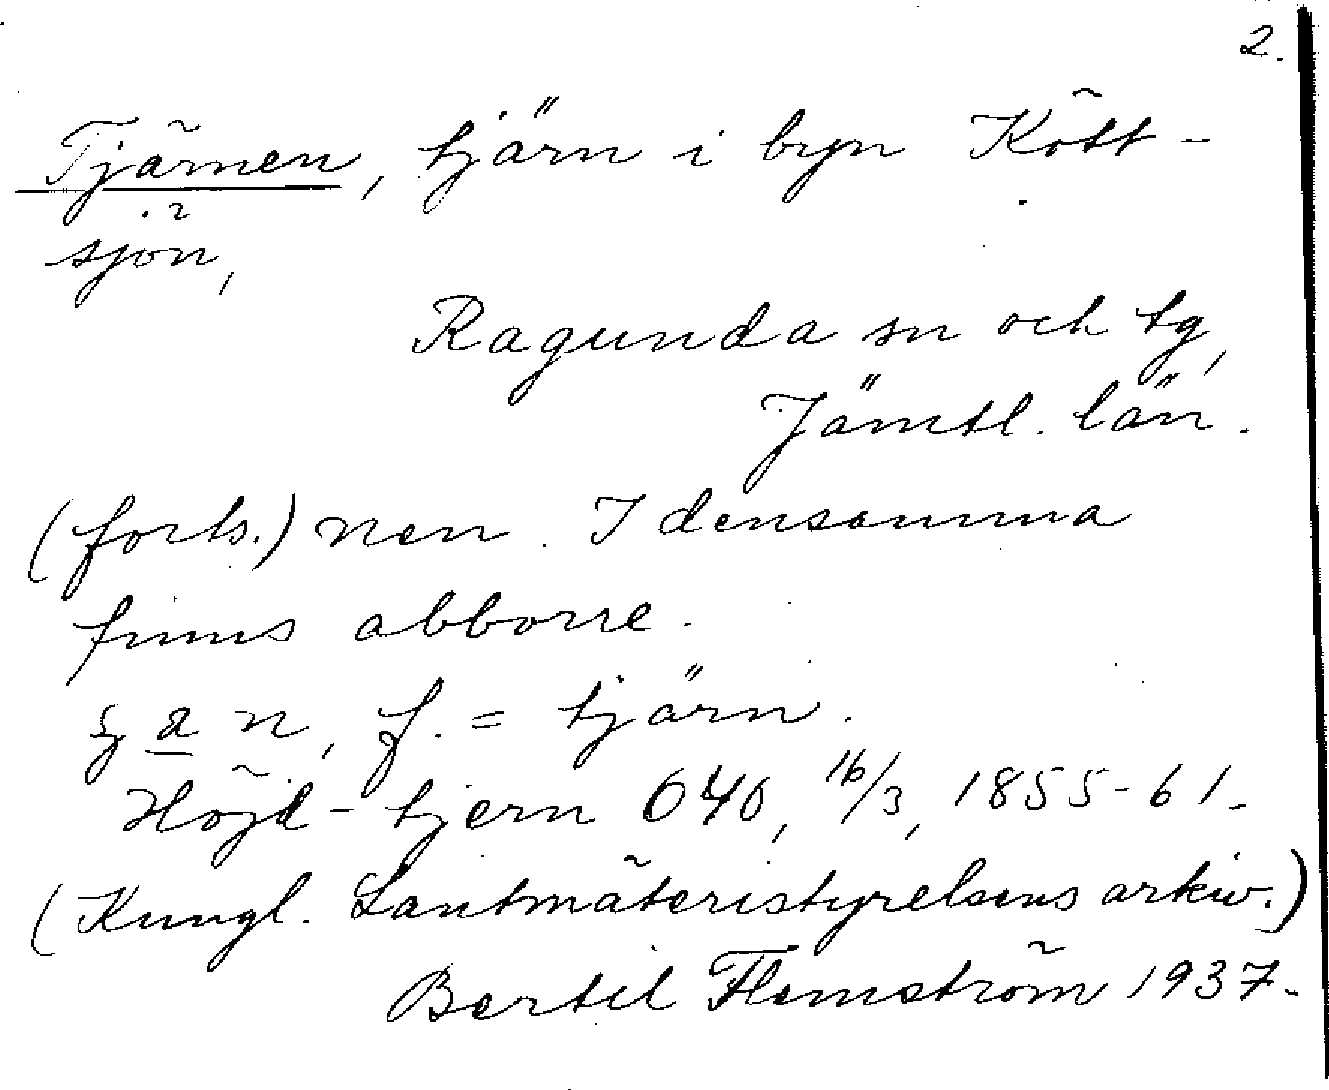 2.
Tjärnen, tjärn i byn Kött-
sjön,
Ragunda sn och tg,
Jämtl. län.
(forts.) nen. I densamma
finns abborre.
f. = tjärn.
Höjd-tjern 040, 16/3, 1855-61.
(Kungl. Lantmäteristyrelsens arkiv.)
Bertil Flemström 1937.